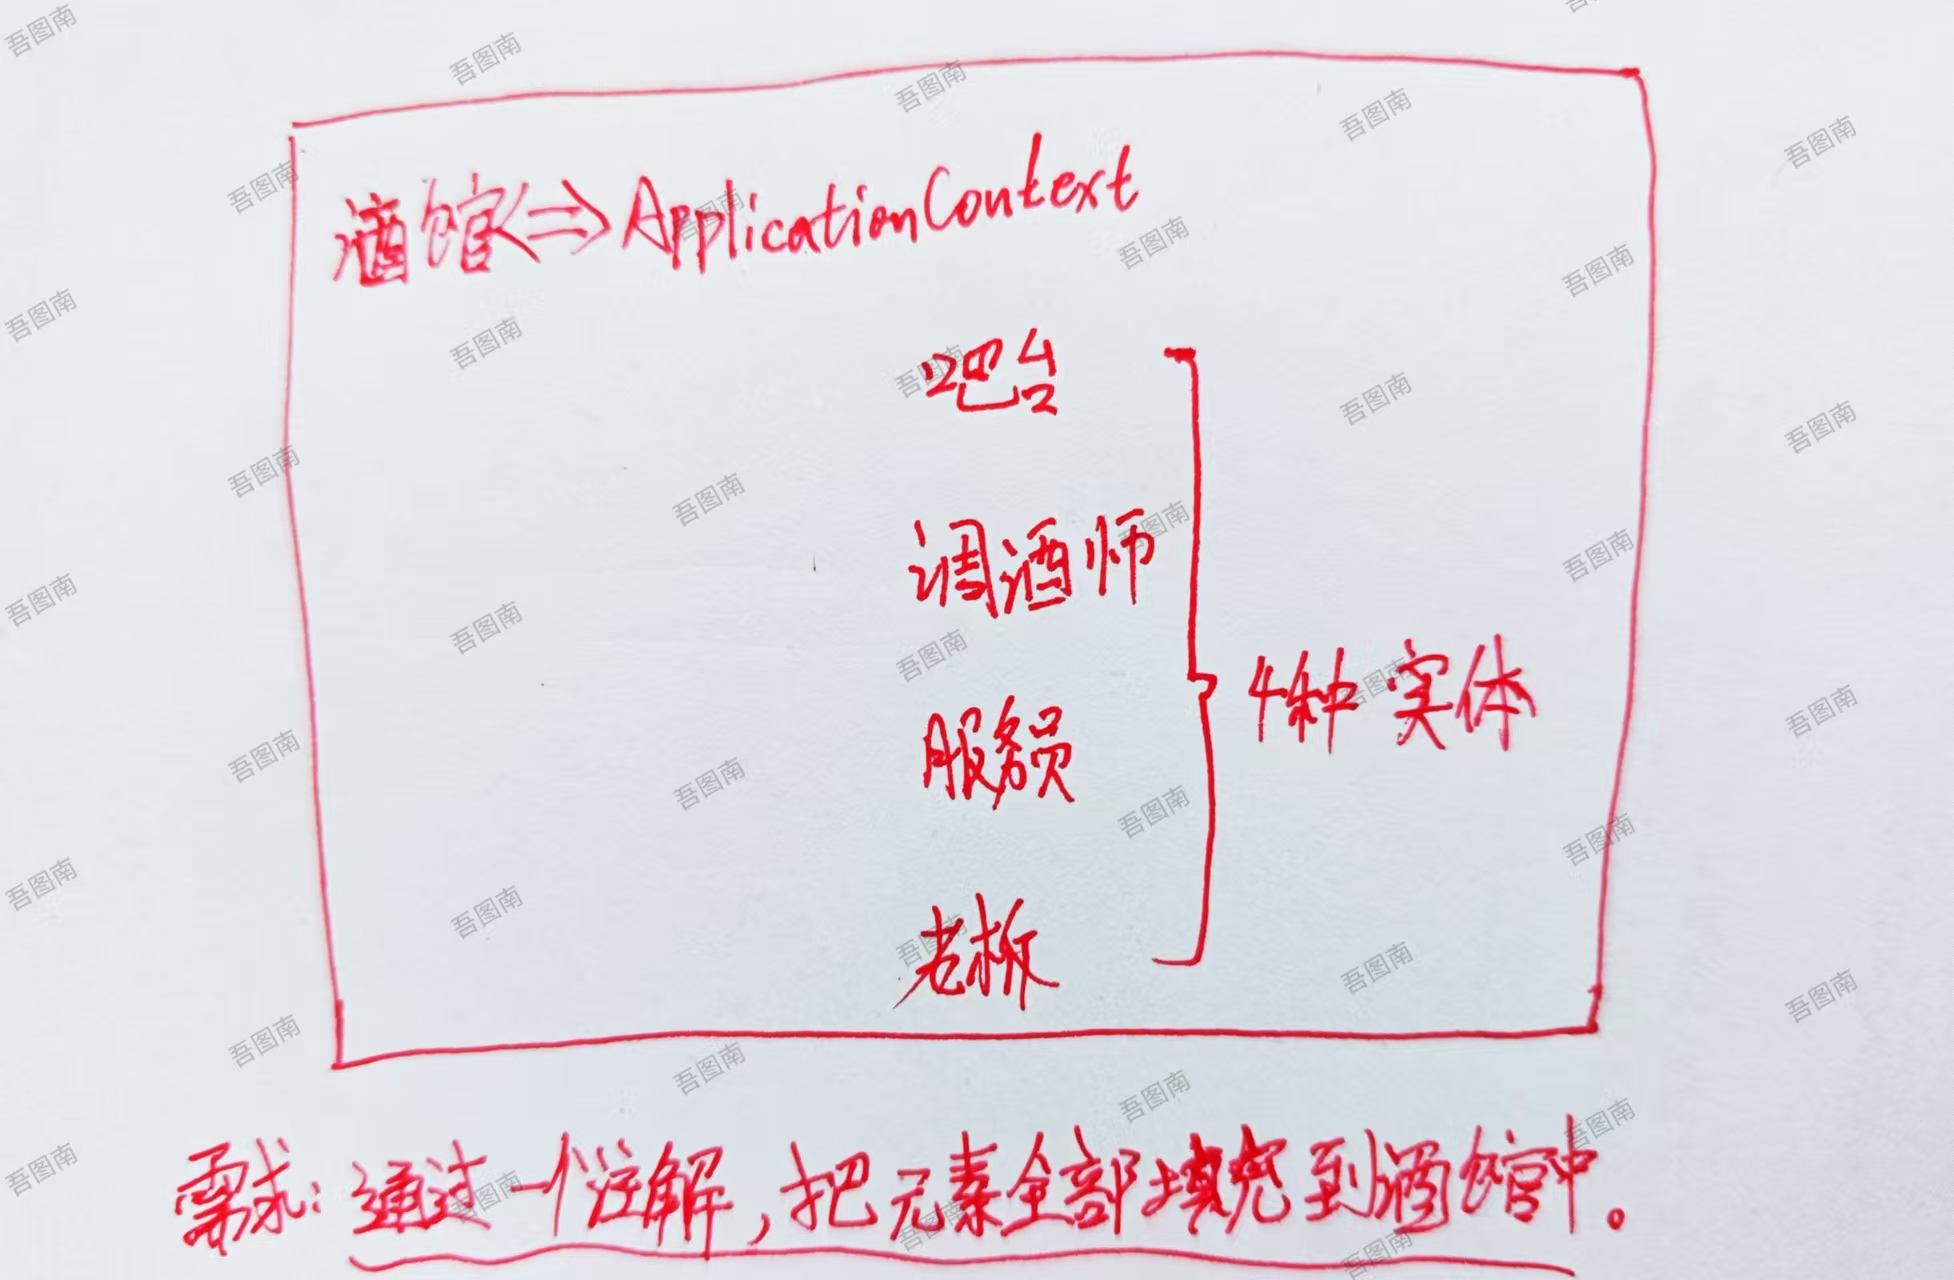 酒馆<=>ApplicationContext
吧台
调酒师
服务员
4种实体
老板
需求:通过一个注解,把元素全部填充到酒馆中。
吾图南